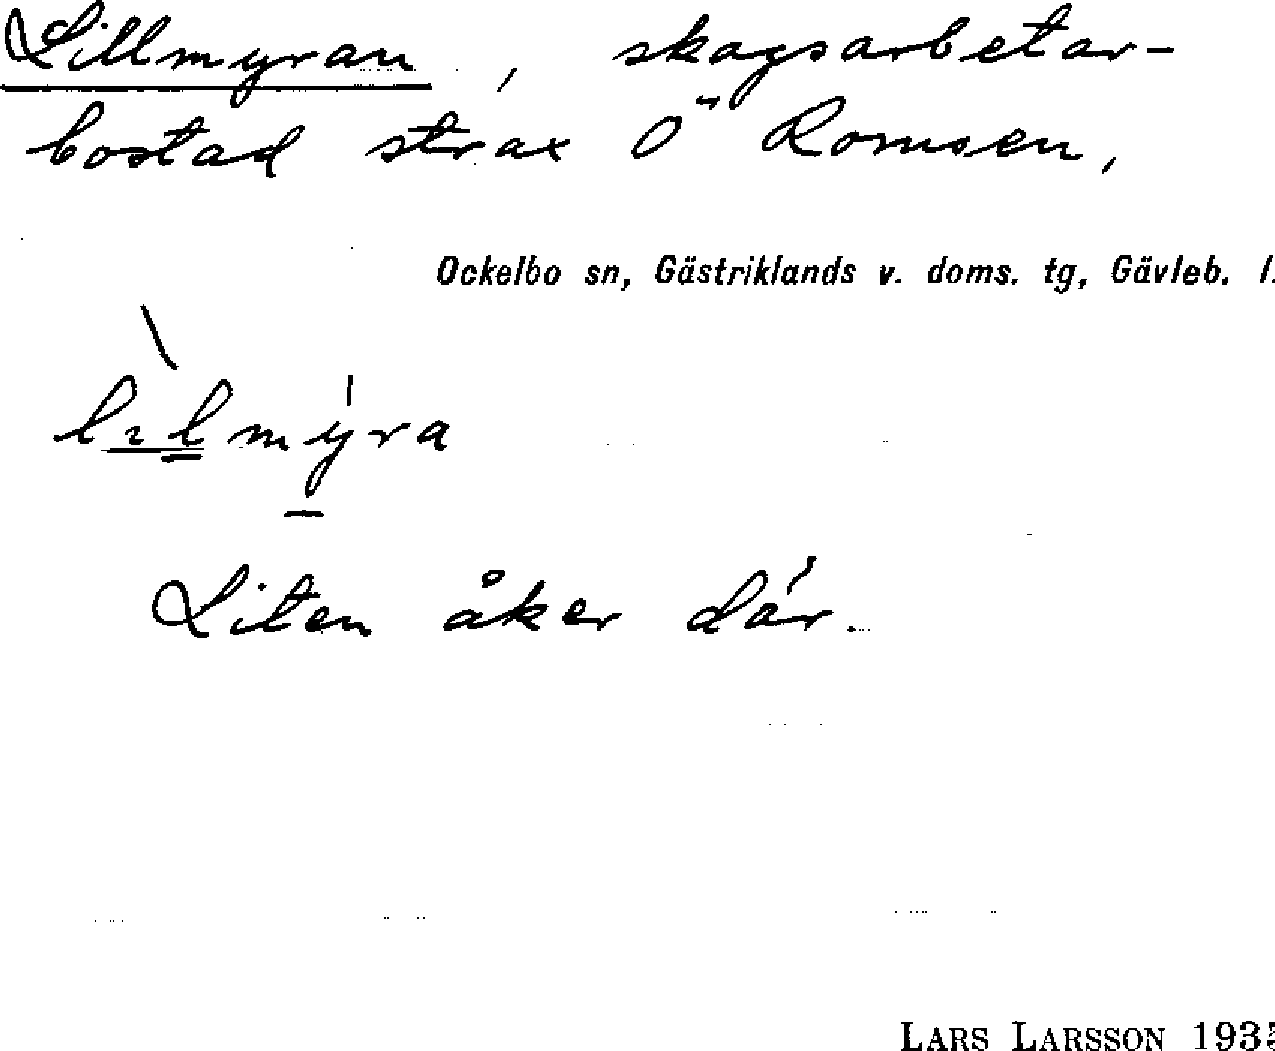 Lillmyran, skogsarbetar-
bostad strax Ö Romsen,
Ockelbo sn, Gästriklands v. doms. tg, Gävleb. l.
Liten åker där.
LARS LARSSON 1935